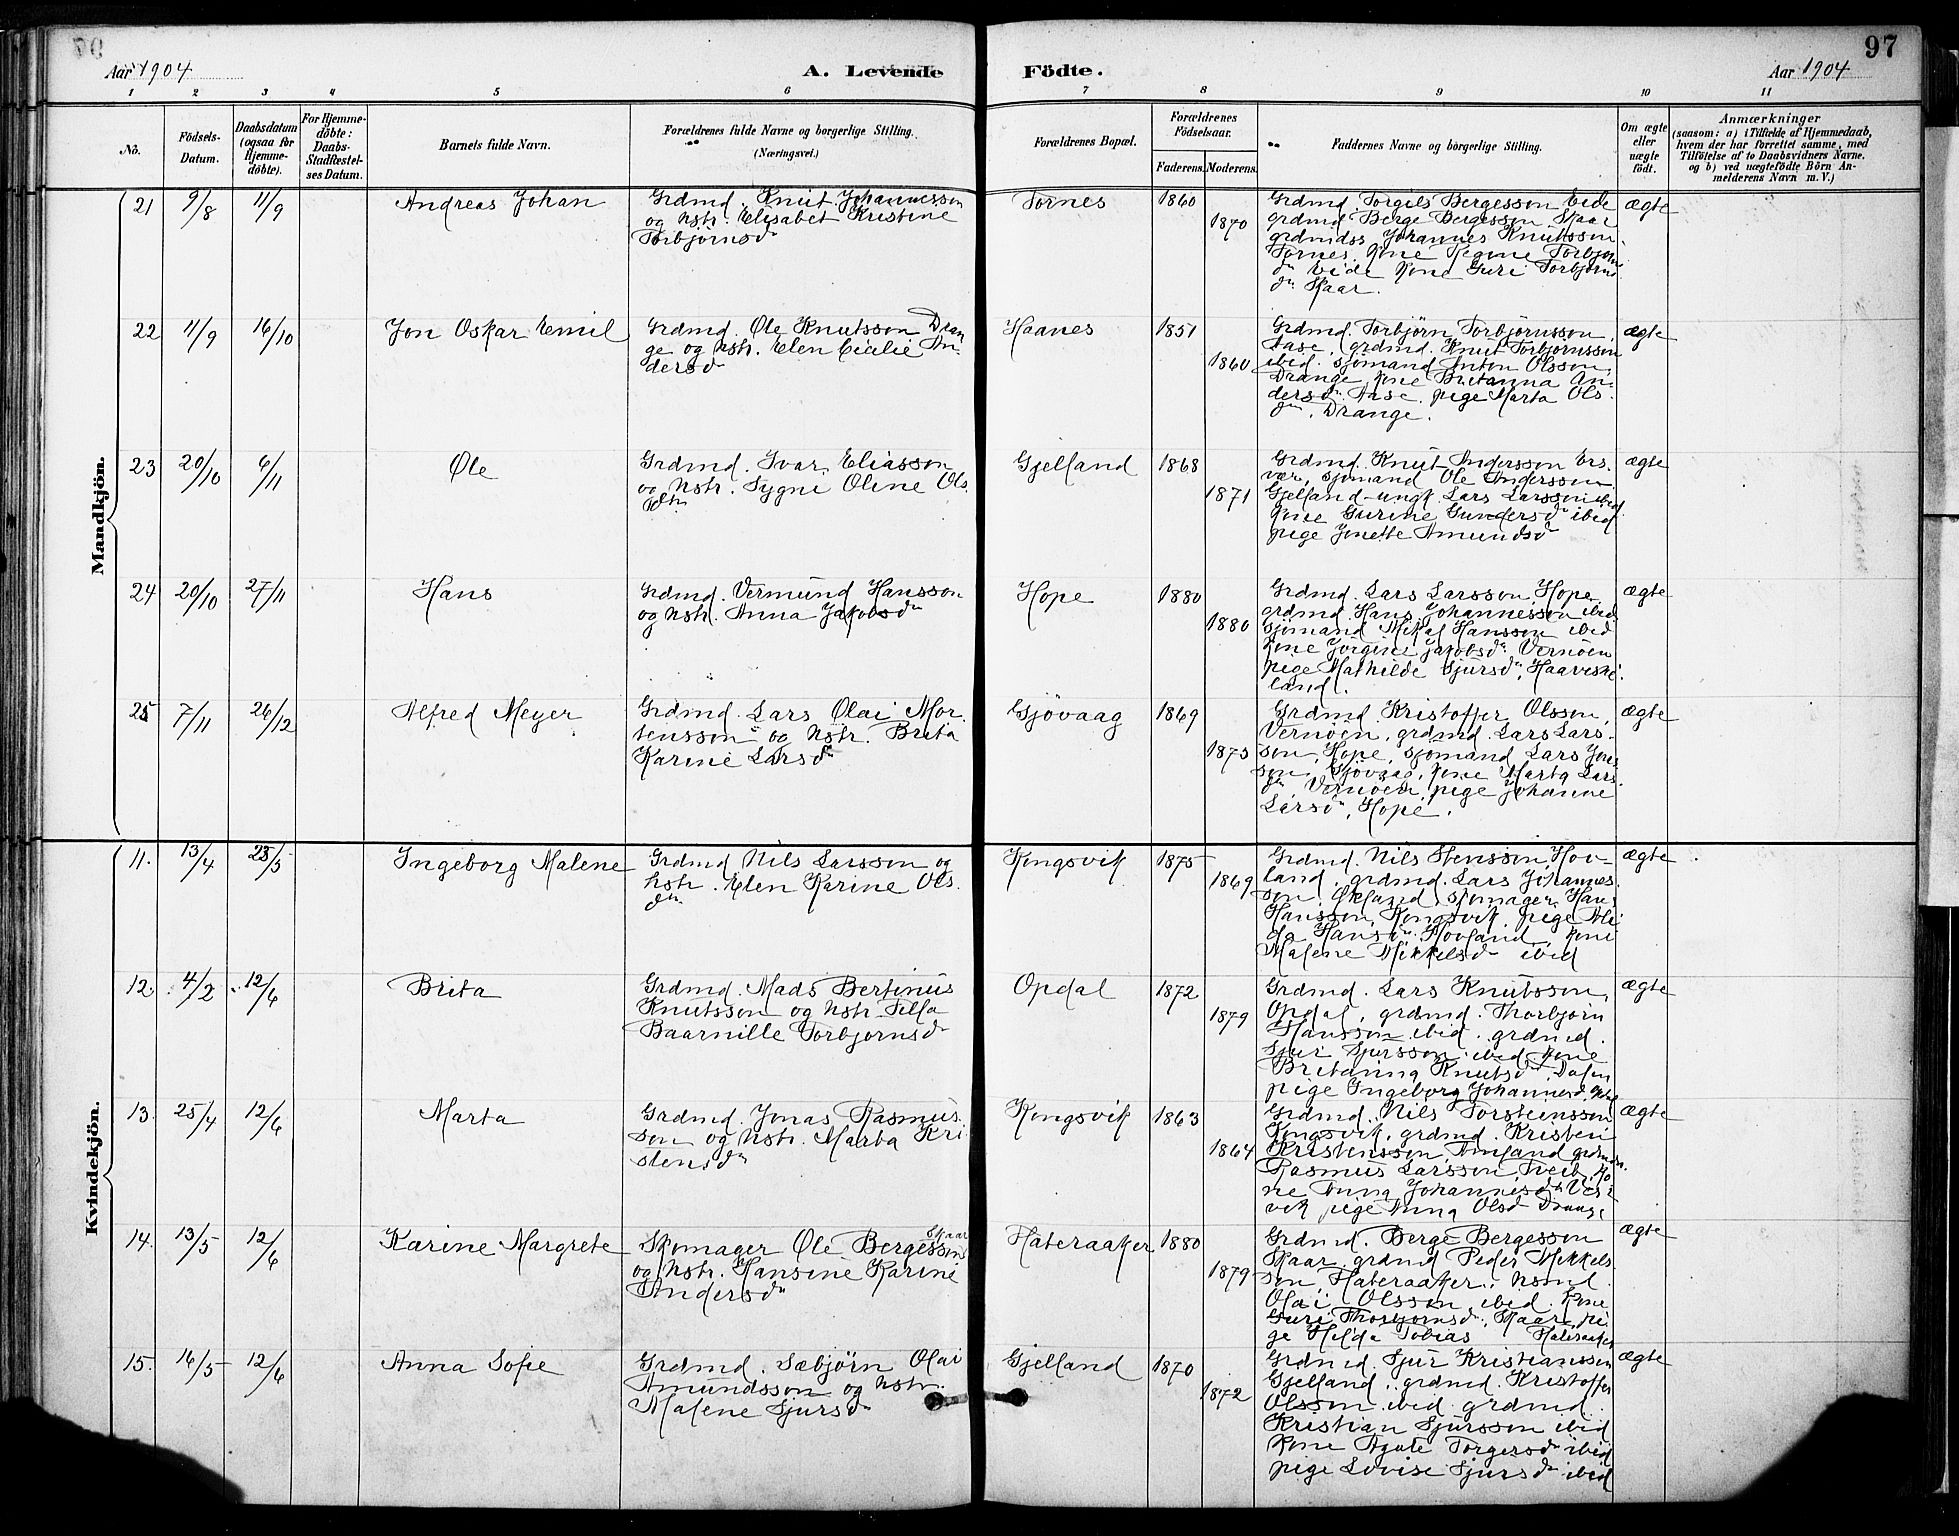 Aar 1904
A. Levende
Födte.
Aar 1904
97
1 2 3 4 5 6 7 8 9 10 11
No.
Födsels-
Datum.
Daabsdatum
(ogsaa for
Hjemme-
döbte).
For Hjemme-
döbte:
Daabs-
Stadfæstel-
ses Datum.
Barnets fulde Navn.
Forældrenes fulde Navne og borgerlige Stilling.
(Næringsvei.)
Forældrenes Bopæl.
Forældrenes
Födselsaar.
Faderens. Moderens.
Faddernes Navne og borgerlige Stilling.
Om ægte
eller
uægte
födt.
Anmærkninger
(saasom: a) i Tilfælde af Hjemmedaab,
hvem der har forrettet samme, med
Tilföielse af to Daabsvidners Navne,
og b) ved uægtefödte Börn An-
melderens Navn m. V.)
Mandkjön.
21 9/8 11/9 Andreas Johan
Grdmd. Knut Johannesson
og hstr. Elisabet Kristine
Torbjörnsdr
Tornes 1860
1870
Grdmd. Torgils Bergesson Eide
grdmd Berge Bergesson Skaar
grdmdss Johannes Knutsson
Tornes, kone Regine Torbjörns
dr Eide kone Guri Torbjörns
dr Skaar.
ægte
22 11/9 16/10 Jon Oskar Emil
Grdmd. Ole Knutsson Dran
ge og hstr. Elen Cicilie An-
dersdr
Haanes 1851
1860
Grdmd. Torbjörn Torbjörnsson,
Aase, grdmd. Knut Torbjörnsson
ibid. sjömand Anton Olsson,
Drange, kone Britanna An-
dersdr Aase. pige Marta Ols-
dr. Drange.
ægte
23 20/10 6/11 Ole
Grdmd. Ivar Eliasson
og hstr. Sygni Oline Ols.
dtr
Gjelland 1868
1871
Grdmd. Knut Andersson Ers
vær, sjömand Ole Andersson
Gjelland ungk. Lars Larsson ibid
kone Gurine Gundersdr ibid
pige Jonette Amundsdr
ægte
24 20/10 27/11 Hans
Grdmd. Vermund Hansson
og hstr. Anna Jakobsdr
Hope 1880
1880
Grdmd. Lars Larsson Hope
grdmd. Hans Johannesson ibid
sjömand Mikal Hansson ibid
kone Jörgine Jakobsdr Vernöen
pige Mathilde Sjursdr, Haaveske-
land.
ægte
25 7/11 26/12 Alfred Meyer
Grdmd. Lars Olai Mor
tensson og hstr. Brita
Karine Larsdr
Gjövaag 1869
1873
Grdmd. Kristoffer Olsson,
Vernöen, grdmd. Lars Lars-
son, Hope, sjömand Lars Jons
son, Gjövaag, kone Marta Lars
dr Vernöen, pige Johanne
Larsdr, Hope.
ægte
Kvindekjön.
11. 13/4 23/5 Ingeborg Malene
Grdmd Nils Larsson og
hstr. Elen Karine Ols.
dr.
Kongsvik 1875
1869
Grdmd. Nils Stensson Hov-
land, grdmd. Lars Johannes
son, Økland, skomager Hans
Hansson, Kongsvik, pige Ali
da Hansdr. Hovland, kone
Malene Mikkelsdr ibid
ægte
12. 4/2 12/6 Brita
Grdmd. Mads Bertinus
Knutsson og hstr. Tilla
Baarnille Torbjornsdr
Opdal 1872
1879
Grdmd. Lars Knutsson,
Opdal, grdmd. Thorbjörn
Hansson ibid. grdmd.
Sjur Sjursson ibid kone
Britanna Knutsdr Dalen
pige Ingeborg Johannesd.
ægte
13. 25/4 12/6 Marta
Grdmd. Jonas Rasmus
son og hstr. Marta Kri
stensdr
Kongsvik 1863
1864
Grdmd. Nils Torsteinsson
Kongsvik, grdmd. Kristen
Kristensson Amland grdmds.
Rasmus Larsson Tveit, ko
ne Anna Johannesdr Ves-
vik pige Anna Olsd Drange
ægte
14. 13/5 12/6 Karine Margrete
Skomager Ole Bergesson Skaar
og hstr. Hansine Karine
Andersdr
Hateraaker 1880
1879
Grdmd. Berge Bergesson
Skaar, grdmd Peder Mikkels
son Hateraaker, hsmd.
Olai Olsson ibid. kone
Guri Thorbjornsdr, Skaar, pi
ge Helda Tobias Hateraaker
ægte
15. 16/5 12/6 Anna Sofie
Grdmd. Sæbjörn Olai
Amundsson og hstr.
Malene Sjursdr
Gjelland 1870
1872
Grdmd. Sjur Kristiansson
Gjelland, grdmd. Kristoffer
Olsson ibid grdmd.
Kristian Sjursson ibid
kone Agate Torgersdr ibid
pige Lovise Sjursdr ibid
ægte